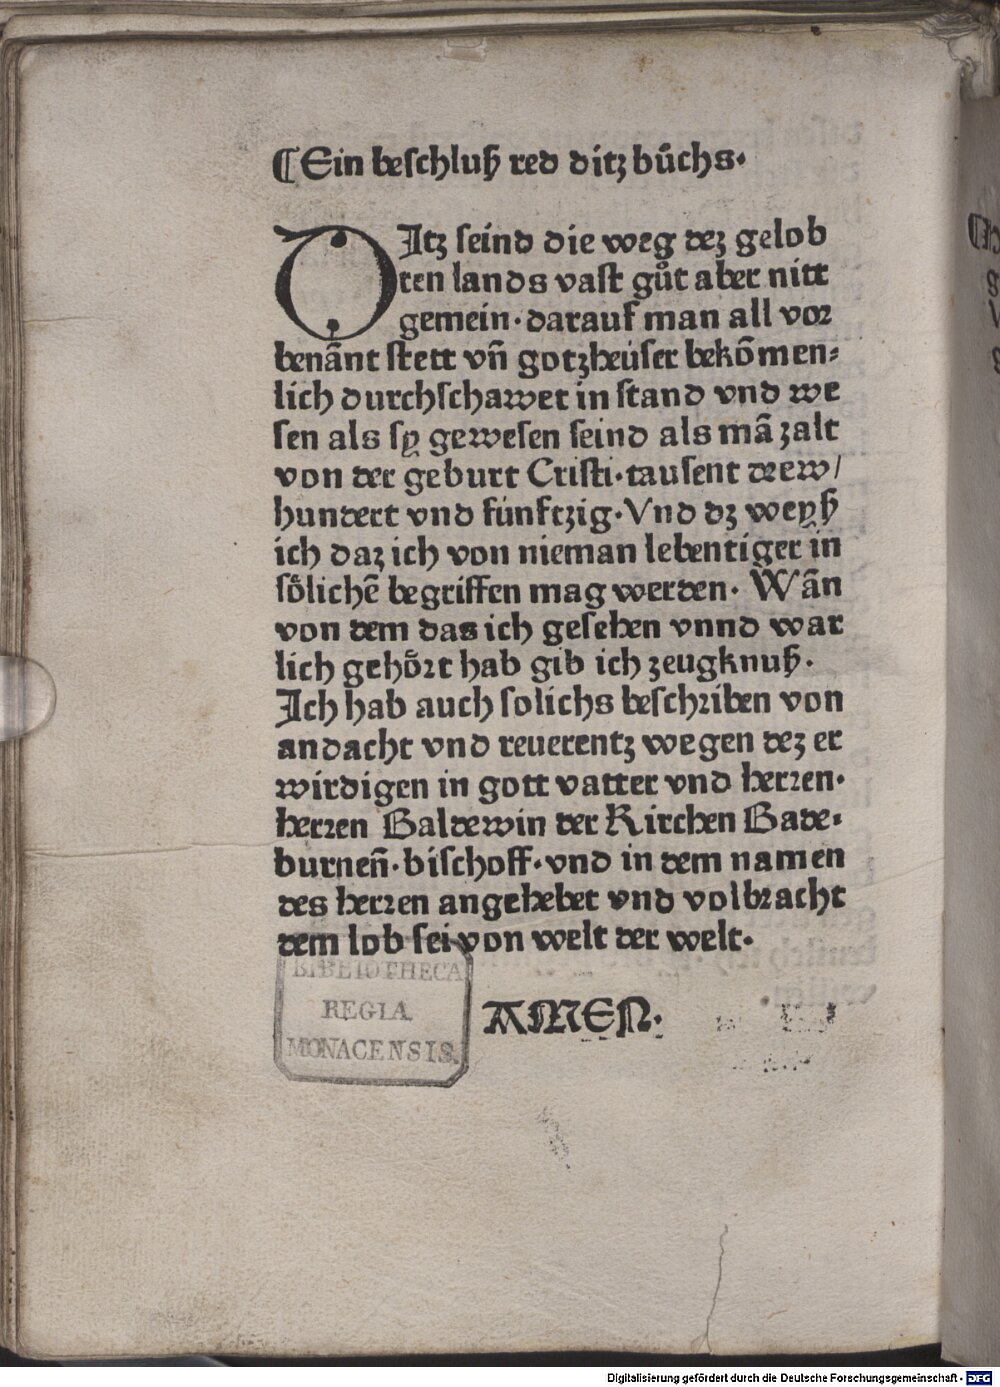 ¶Ein beſchluſz red ditz bůchs·
DItz ſeind die weg dez gelob
ten lands vaſt gůt aber nitt
gemein· darauf man all vor
benãnt ſtett vñ gotzheuſer bekõmen⸗
lich durchſchawet in ſtand vnd we
ſen als ſy geweſen ſeind als mã zalt
von der geburt Criſti· tauſent drew/
hundert vnd fünftzig· Vnd dz weyß
ich daz ich von nieman lebentiger in
ſoͤlichẽ begriffen mag werden· Wãn
von dem das ich geſehen vnnd war
lich gehoͤrt hab gib ich zeugknuß·
Ich hab auch ſolichs beſchriben von
andacht vnd reuerentz wegen dez er
wirdigen in gott vatter vnd herren·
herren Baldewin der Kirchen Bade⸗
burneñ· biſchoff· vnd in dem namen
des herren angehebet vnd volbracht
dem lob ſei von welt der welt·
AMEN·
BIBLIOTHECA
REGIA
MONACENSIS.
Digitalisierung gefördert durch die Deutsche Forschungsgemeinschaft - DFG